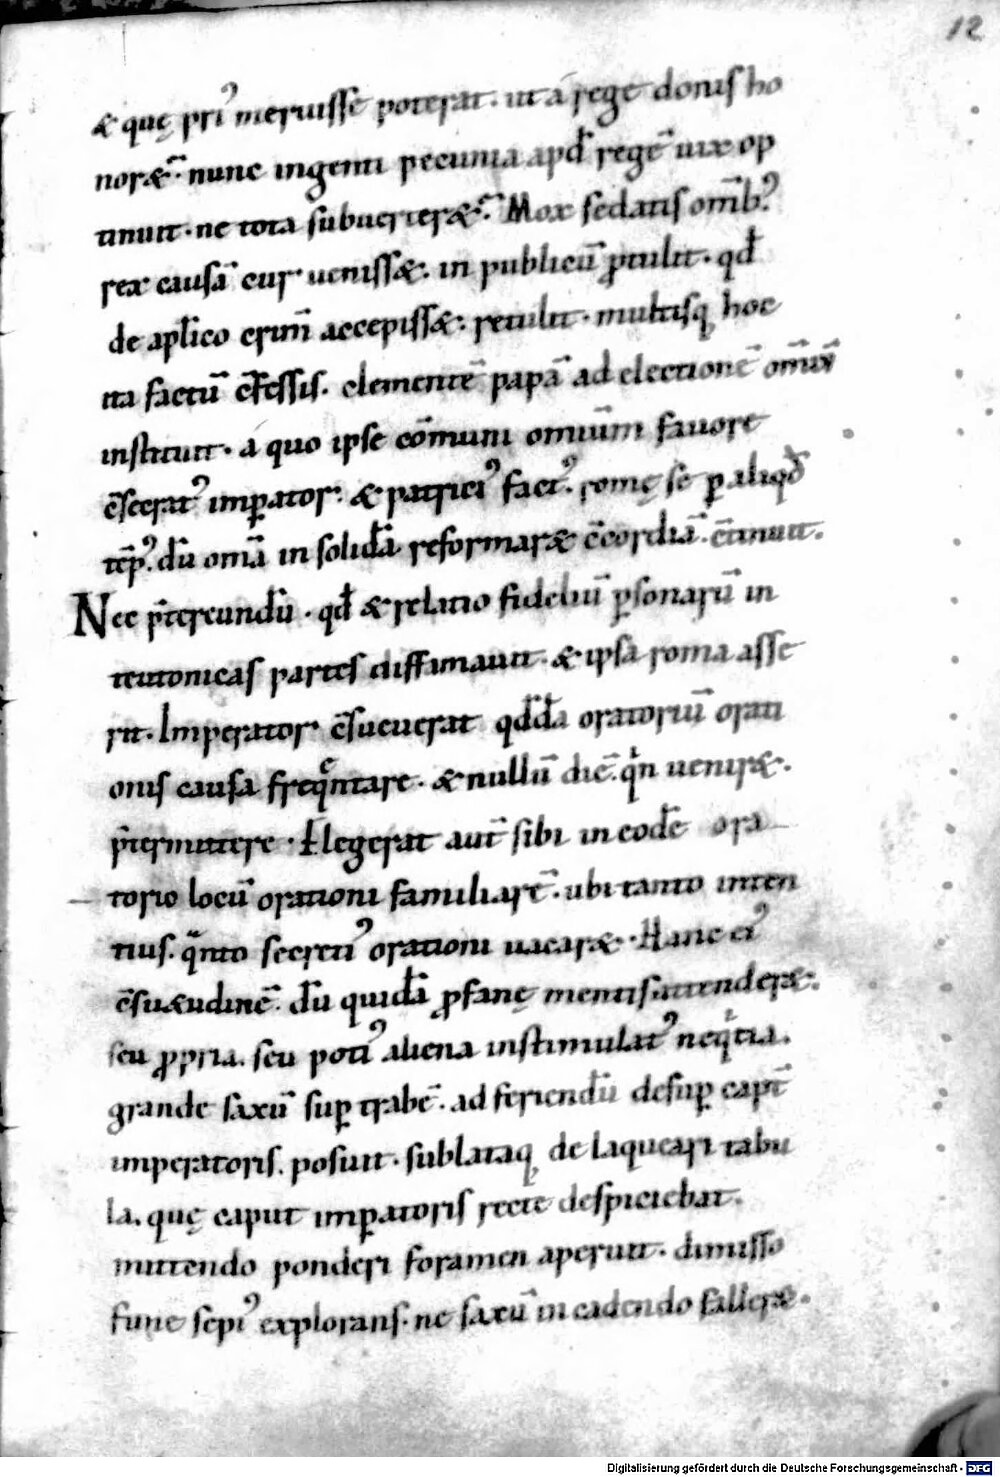 12
& quę pri᾽ meruisse poterat · ut á rege donis ho
noræ᷒ · nunc ingenti pecunia apđ regē uix op
tinuit · ne tota subuerteræ᷒. Mox sedatis om̄ib᾽
rex causā cur uenissæ · in publicū ꝓtulit · qđ
de apłico crim̄ accepissæ · retulit · multisq hoc
ita factū c̄fessis · clementē papā ad electionē om̄iū
instituit · á quo ipse cōmuni omiūm fauore
c̄secrat᾽ imꝑator · & patrici᾽ fact᾽ · romę se ꝑ aliqđ
tēp᾽ dū om̄a in solidā reformaræ c̄cordiā · c̄tinuit ·
Nec p̄tereundū · qđ & relatio fideliū ꝑsonarū in
teutonicas partes diffamauit · & ipsa roma asse
rit · Imperator c̄sueuerat qđđa oratoriū orati
onis causa freqͤntare · & nullū diē qͥn ueniræ ·
p̄termittere · Elegerat aut̄ sibi in eodē ora
torio locū orationi familiarē · ubi tanto inten
tius · qͣnto secreti᾽ orationi uacaræ · Hanc ei᾽
c̄suæudinē · dū quidā ꝓfanę mentis attenderæ ·
seu ꝓpria · seu poti᾽ aliena instimulat᾽ neqͥtia ·
grande saxū suꝑ trabē · ad feriendū desuꝑ capī
imperatoris · posuit · sublataq de laqueari tabu
la · quę caput imꝑatoris recte despiciebat ·
mittendo ponderi foramen aperuit · dimisso
fune sepi᾽ explorans · ne saxū in cadendo falleræ ·
Digitalisierung gefördert durch die Deutsche Forschungsgemeinschaft - DFG